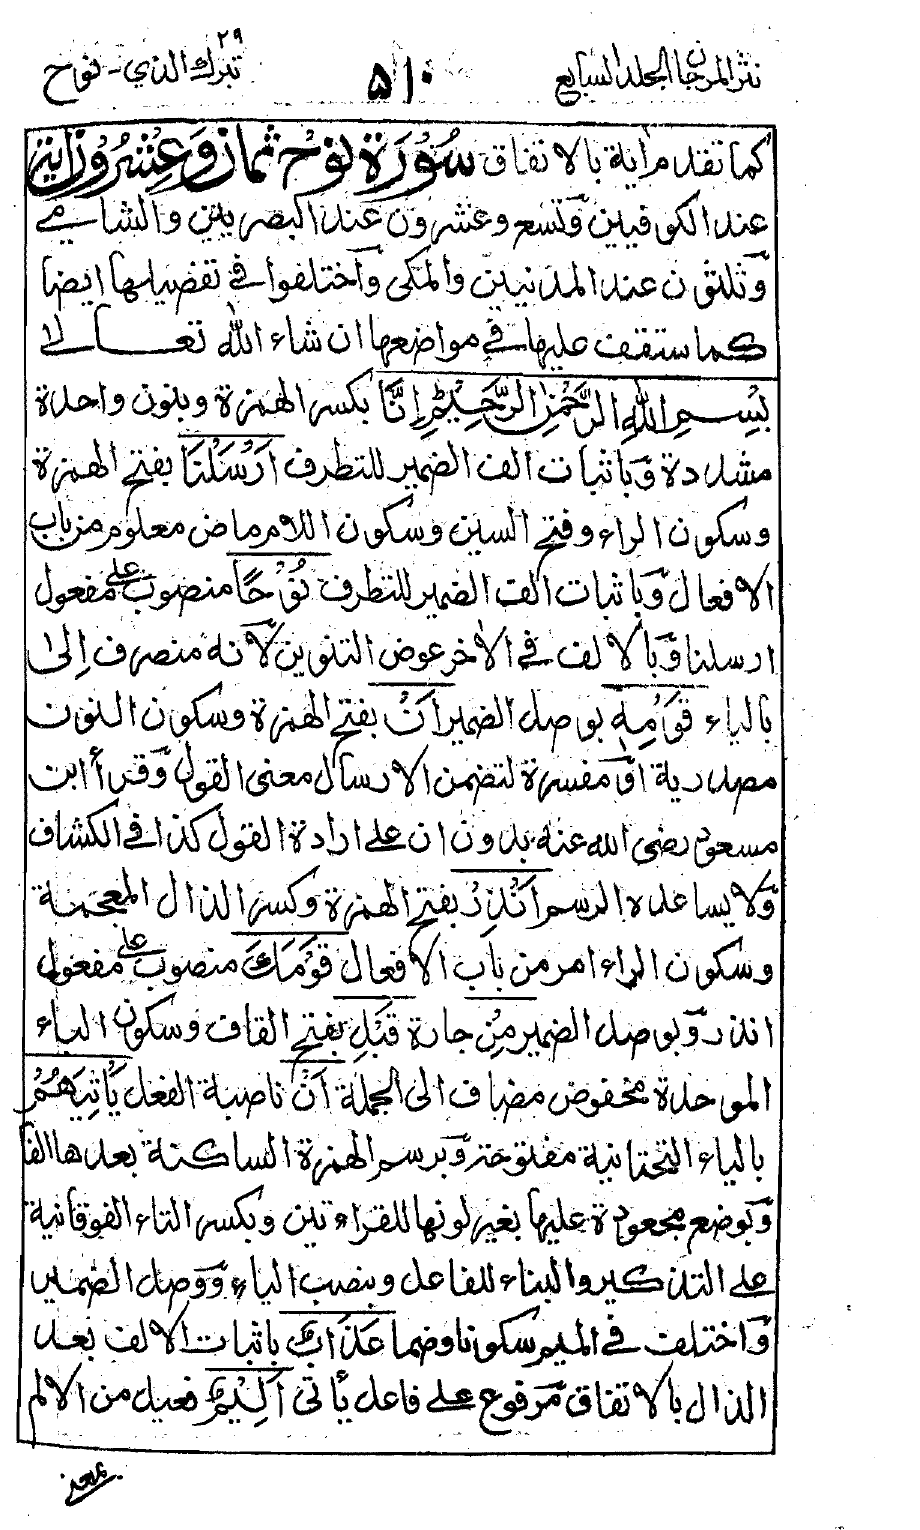 نثر المرجان المجلد السابع
۵۱۰
۲۹
تبرك الذي - نوح
كما تقدم راية بالاتفاق سُوْرَة نُوْح ثمان وَعِشْرُوْن اٰية
عند الكوفيين وتسع وعشرون عند البصريين والشامي
وثلثون عند المدنيين والمكى واختلفوا في تفصيلها ايضا
كما ستقف عليها في مواضعها ان شاء الله تعالى
بِسْمِ اللهِ الرَّحْمٰنِ الرَّحِيْمِ اِنَّا بكسر الهمزة وبنون واحدة
مشددة وباثبات الف الضمير للتطرف اَرْسَلْنَا بفتح الهمزة
وسكون الراء وفتح السين وسكون اللام ماض معلوم من باب
الافعال وباثبات الف الضمير للتطرف نُوْحًا منصوب على مفعول
ارسلنا وبالالف في الاٰخر عوض التنوين لانه منصرف اِلىٰ
بالياء قَوْمِهٖ بوصل الضمير اَنْ بفتح الهمزة وسكون النون
مصدرية او مفسرة لتضمن الارسال معنى القول وقرأ ابن
مسعود رضى الله عنه بدون ان على ارادة القول كذا في الكشاف
ولا يساعده الرسم اَنْذِرْ بفتح الهمزة وكسر الذال المعجمة
وسكون الراء امر من باب الافعال قَوْمَكَ منصوب على مفعول
انذر وبوصل الضمير مِنْ جارة قَبْلِ بفتح القاف وسكون الباء
الموحدة مخفوض مضاف الى الجملة اَنْ ناصبة الفعل يَّاْتِيَهُمْ
بالياء التحتانية مفتوحة وبرسم الهمزة الساكنة بعدها الفا
وبوضع مجعودة عليها بغير لونها للقراءتين وبكسر التاء الفوقانية
على التذكير والبناء للفاعل وبنصب الياء ووصل الضمير
واختلف في الميم سكونا وضما عَذَابٌ باثبات الالف بعد
الذال بالاتفاق مرفوع على فاعل يأتى اَلِيْمٌ فعيل من الالم
بمعنى